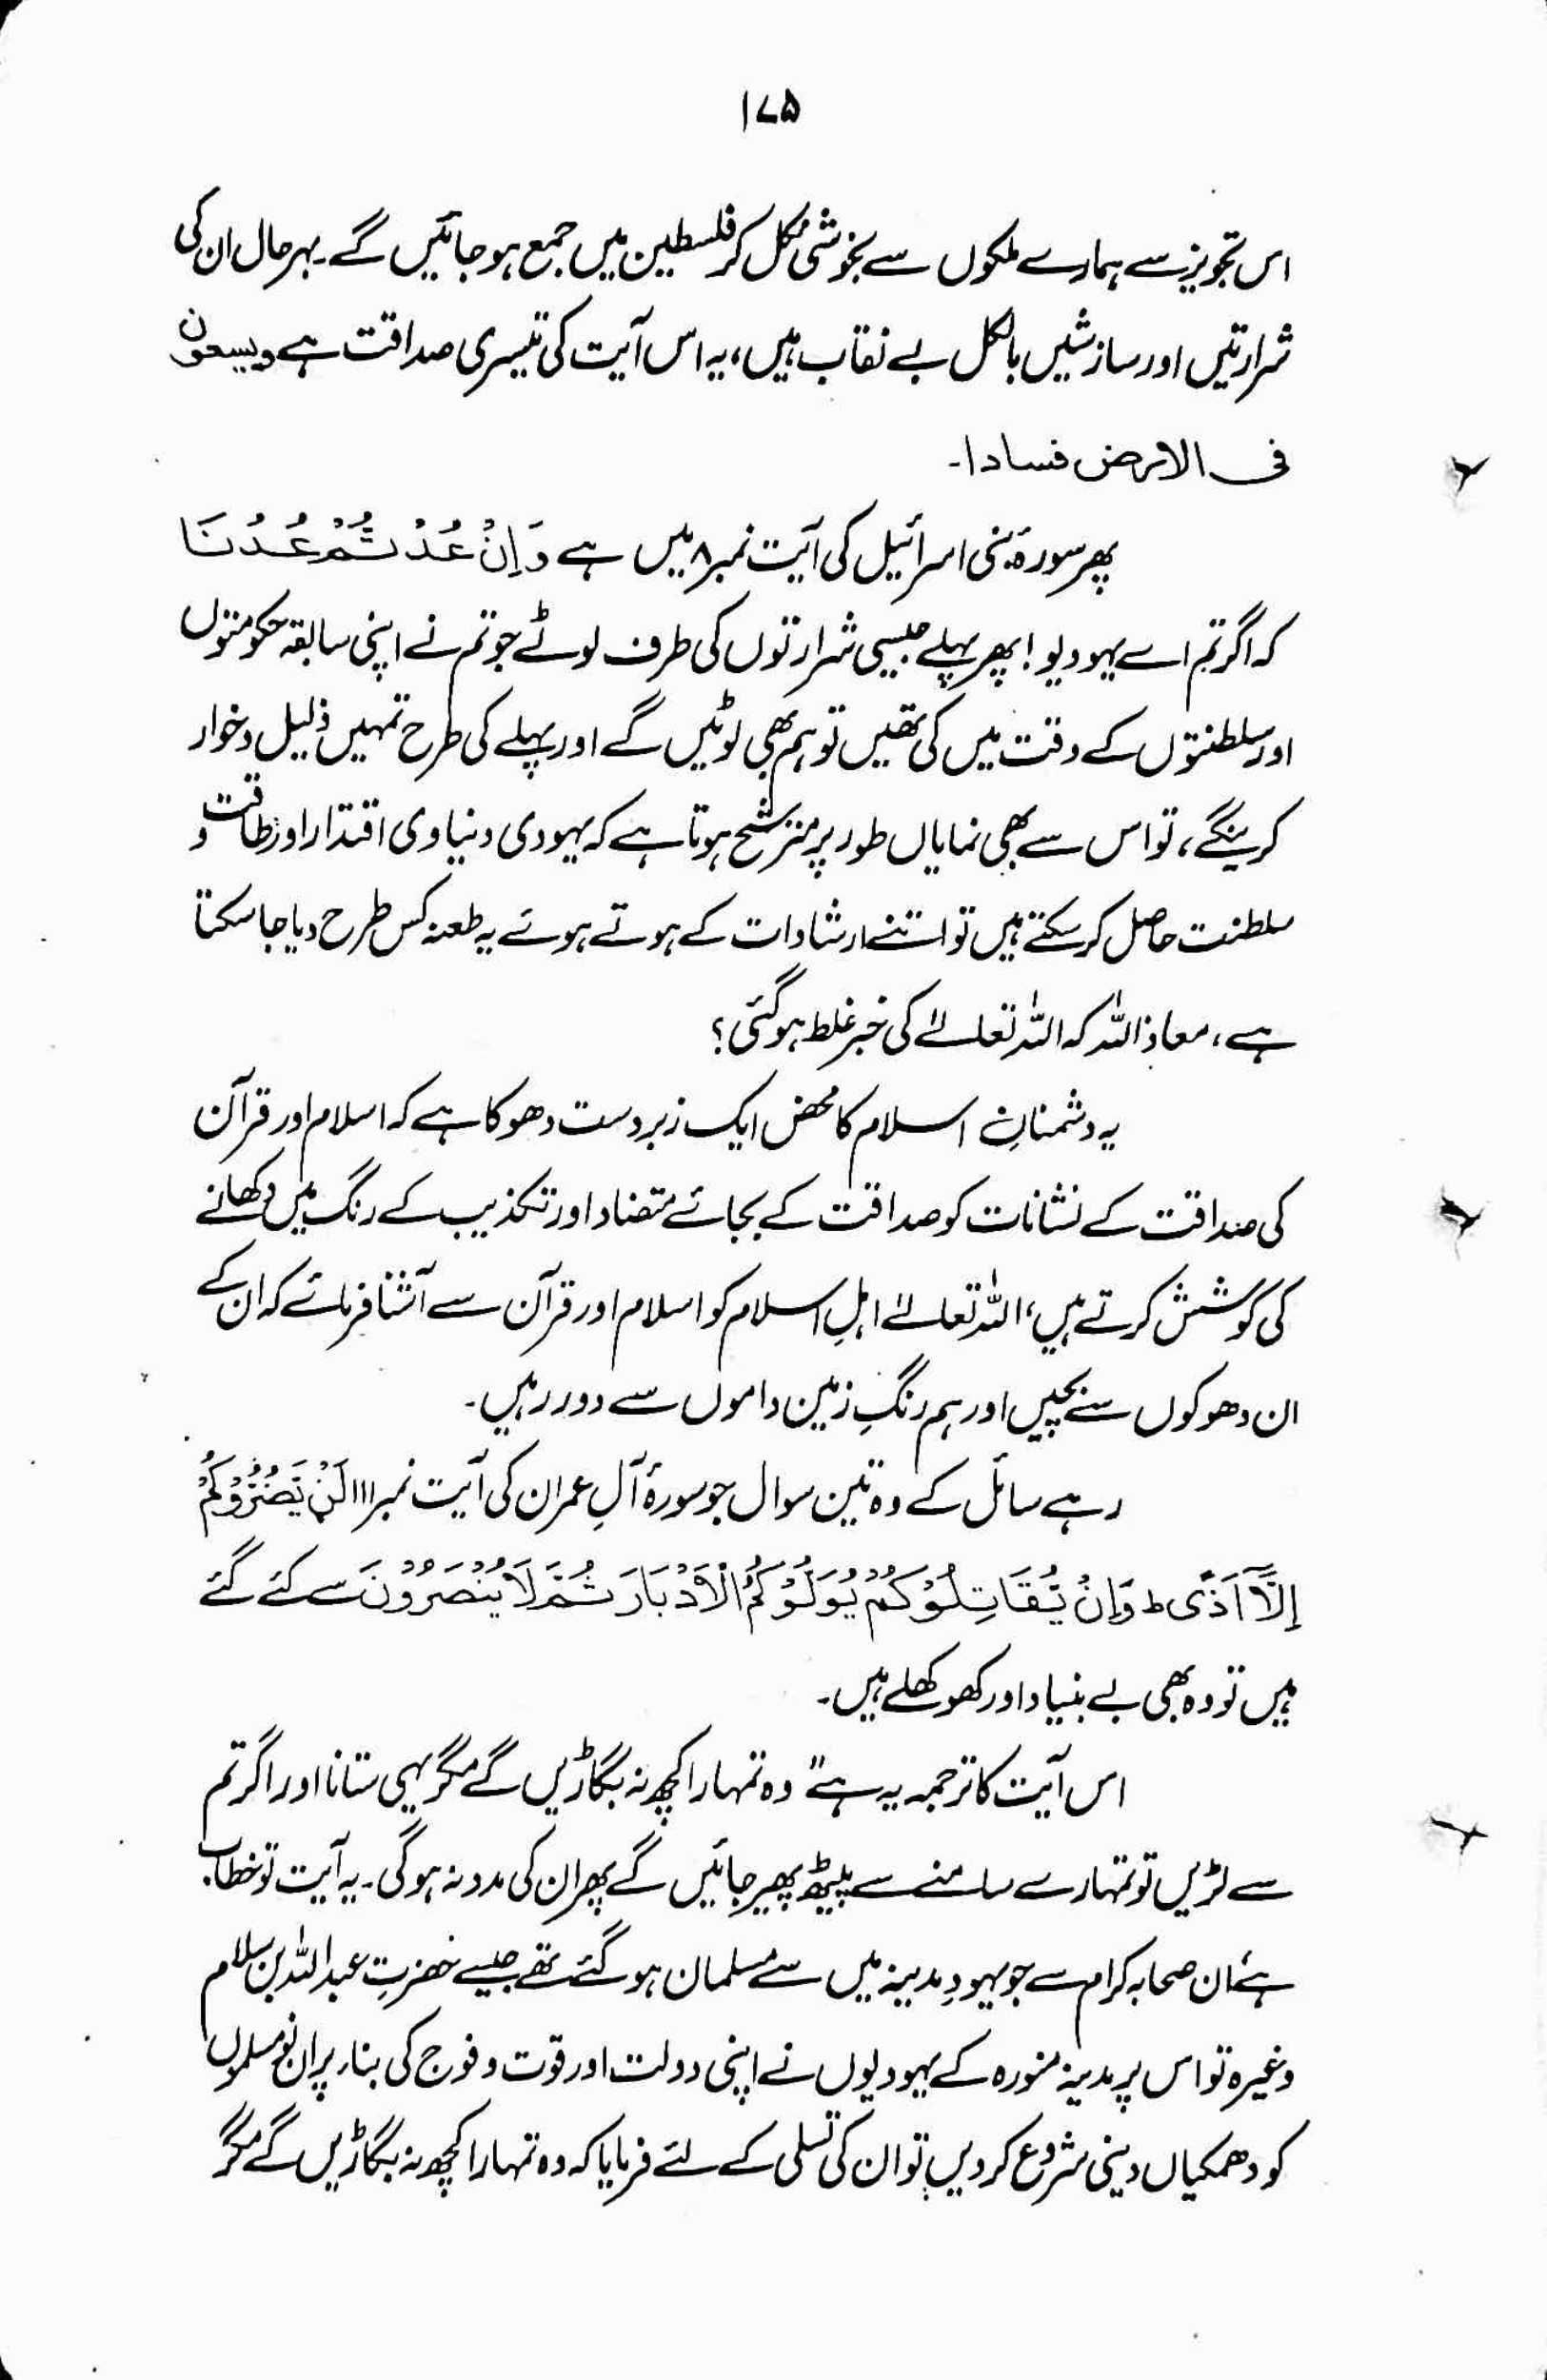 ۱۷۵
اس تجویز سے ہمارے ملکوں سے بخوشی نکل کر فلسطین میں جمع ہو جائیں گے۔ بہر حال ان کی
شرارتیں اور سازشیں بالکل بے نقاب ہیں، یہ اس آیت کی تیسری صداقت ہے ویسعون
فی الارض فسادا۔
پھر سورۂ بنی اسرائیل کی آیت نمبر ۸ میں ہے وَاِنْ عُدْتُّمْ عُدْنَا
کہ اگر تم اے یہودیو! پھر پہلے جیسی شرارتوں کی طرف لوٹے جو تم نے اپنی سابقہ حکومتوں
اور سلطنتوں کے وقت میں کی تھیں تو ہم بھی لوٹیں گے اور پہلے کی طرح تمہیں ذلیل و خوار
کرینگے، تو اس سے بھی نمایاں طور پر مترشح ہوتا ہے کہ یہودی دنیاوی اقتدار اور طاقت و
سلطنت حاصل کر سکتے ہیں تو اتنے ارشادات کے ہوتے ہوئے یہ طعنہ کس طرح دیا جا سکتا
ہے، معاذ اللہ کہ اللہ تعالےٰ کی خبر غلط ہو گئی؟
یہ دشمنانِ اسلام کا محض ایک زبردست دھوکا ہے کہ اسلام اور قرآن
کی صداقت کے نشانات کو صداقت کے بجائے متضاد اور تکذیب کے رنگ میں دکھانے
کی کوشش کرتے ہیں، اللہ تعالےٰ اہلِ اسلام کو اسلام اور قرآن سے آشنا فرمائے کہ ان کے
ان دھوکوں سے بچیں اور ہم رنگِ زمین داموں سے دور رہیں۔
رہے سائل کے وہ تین سوال جو سورۂ آلِ عمران کی آیت نمبر ۱۱۱ لَنْ يَّضُرُّوْكُمْ
اِلَّاۤ اَذًى ط وَاِنْ يُّقَاتِلُوْكُمْ يُوَلُّوْكُمُ الْاَدْبَارَ ثُمَّ لَا يُنْصَرُوْنَ سے کئے گئے
ہیں تو وہ بھی بے بنیاد اور کھوکھلے ہیں۔
اس آیت کا ترجمہ یہ ہے "وہ تمہارا کچھ نہ بگاڑیں گے مگر یہی ستانا اور اگر تم
سے لڑیں تو تمہارے سامنے سے پیٹھ پھیر جائیں گے پھر ان کی مدد نہ ہوگی۔ یہ آیت تو خطاب
ہے ان صحابہ کرام سے جو یہودِ مدینہ میں سے مسلمان ہو گئے تھے جیسے حضرتِ عبداللہ بن سلام
وغیرہ تو اس پر مدینہ منورہ کے یہودیوں نے اپنی دولت اور قوت و فوج کی بناء پر ان نو مسلموں
کو دھمکیاں دینی شروع کر دیں تو ان کی تسلی کے لئے فرمایا کہ وہ تمہارا کچھ نہ بگاڑیں گے مگر